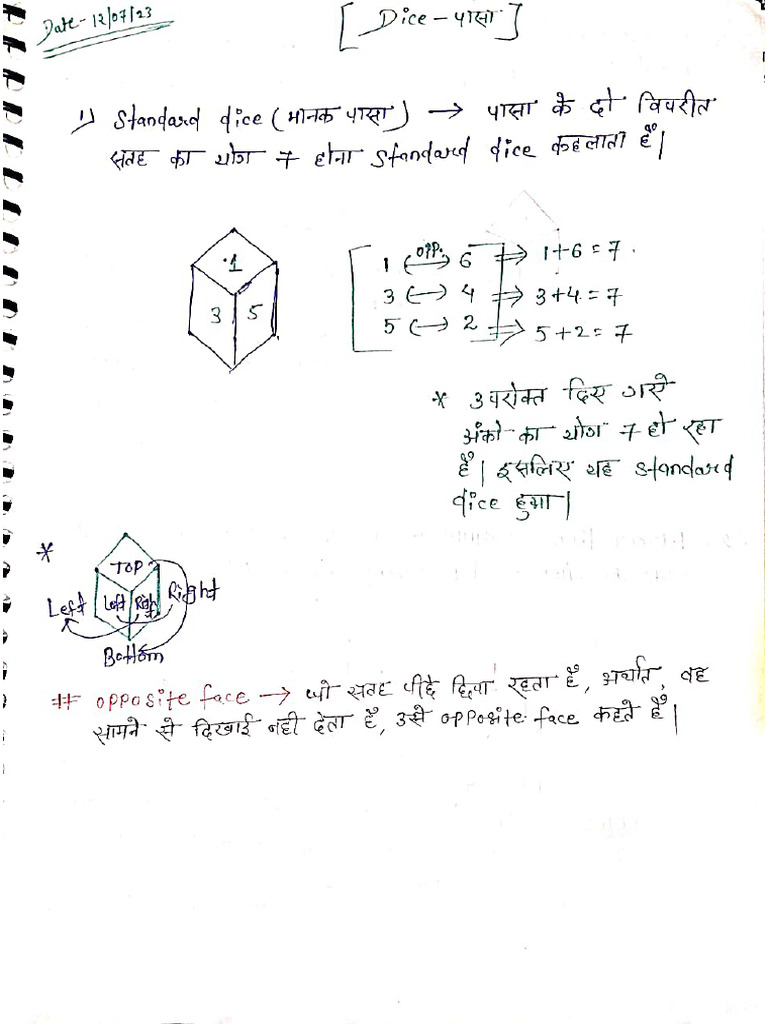 Date- 12/07/23
[Dice - पासा]
1) Standard dice (मानक पासा) → पासा के दो विपरीत
सतह का योग 7 होना Standard dice कहलाता है|
1
3 5
1 ←opp.→ 6 ⇒ 1+6=7
3 ←→ 4 ⇒ 3+4=7
5 ←→ 2 ⇒ 5+2=7
* उपरोक्त दिए गये
अंको का योग 7 हो रहा
है| इसलिए यह standard
dice हुआ|
*
TOP
Left Left Right Right
Bottom
# opposite face → जो सतह पीछे छिपा रहता है, अर्थात, वह
सामने से दिखाई नही देता है, उसे opposite face कहते है|